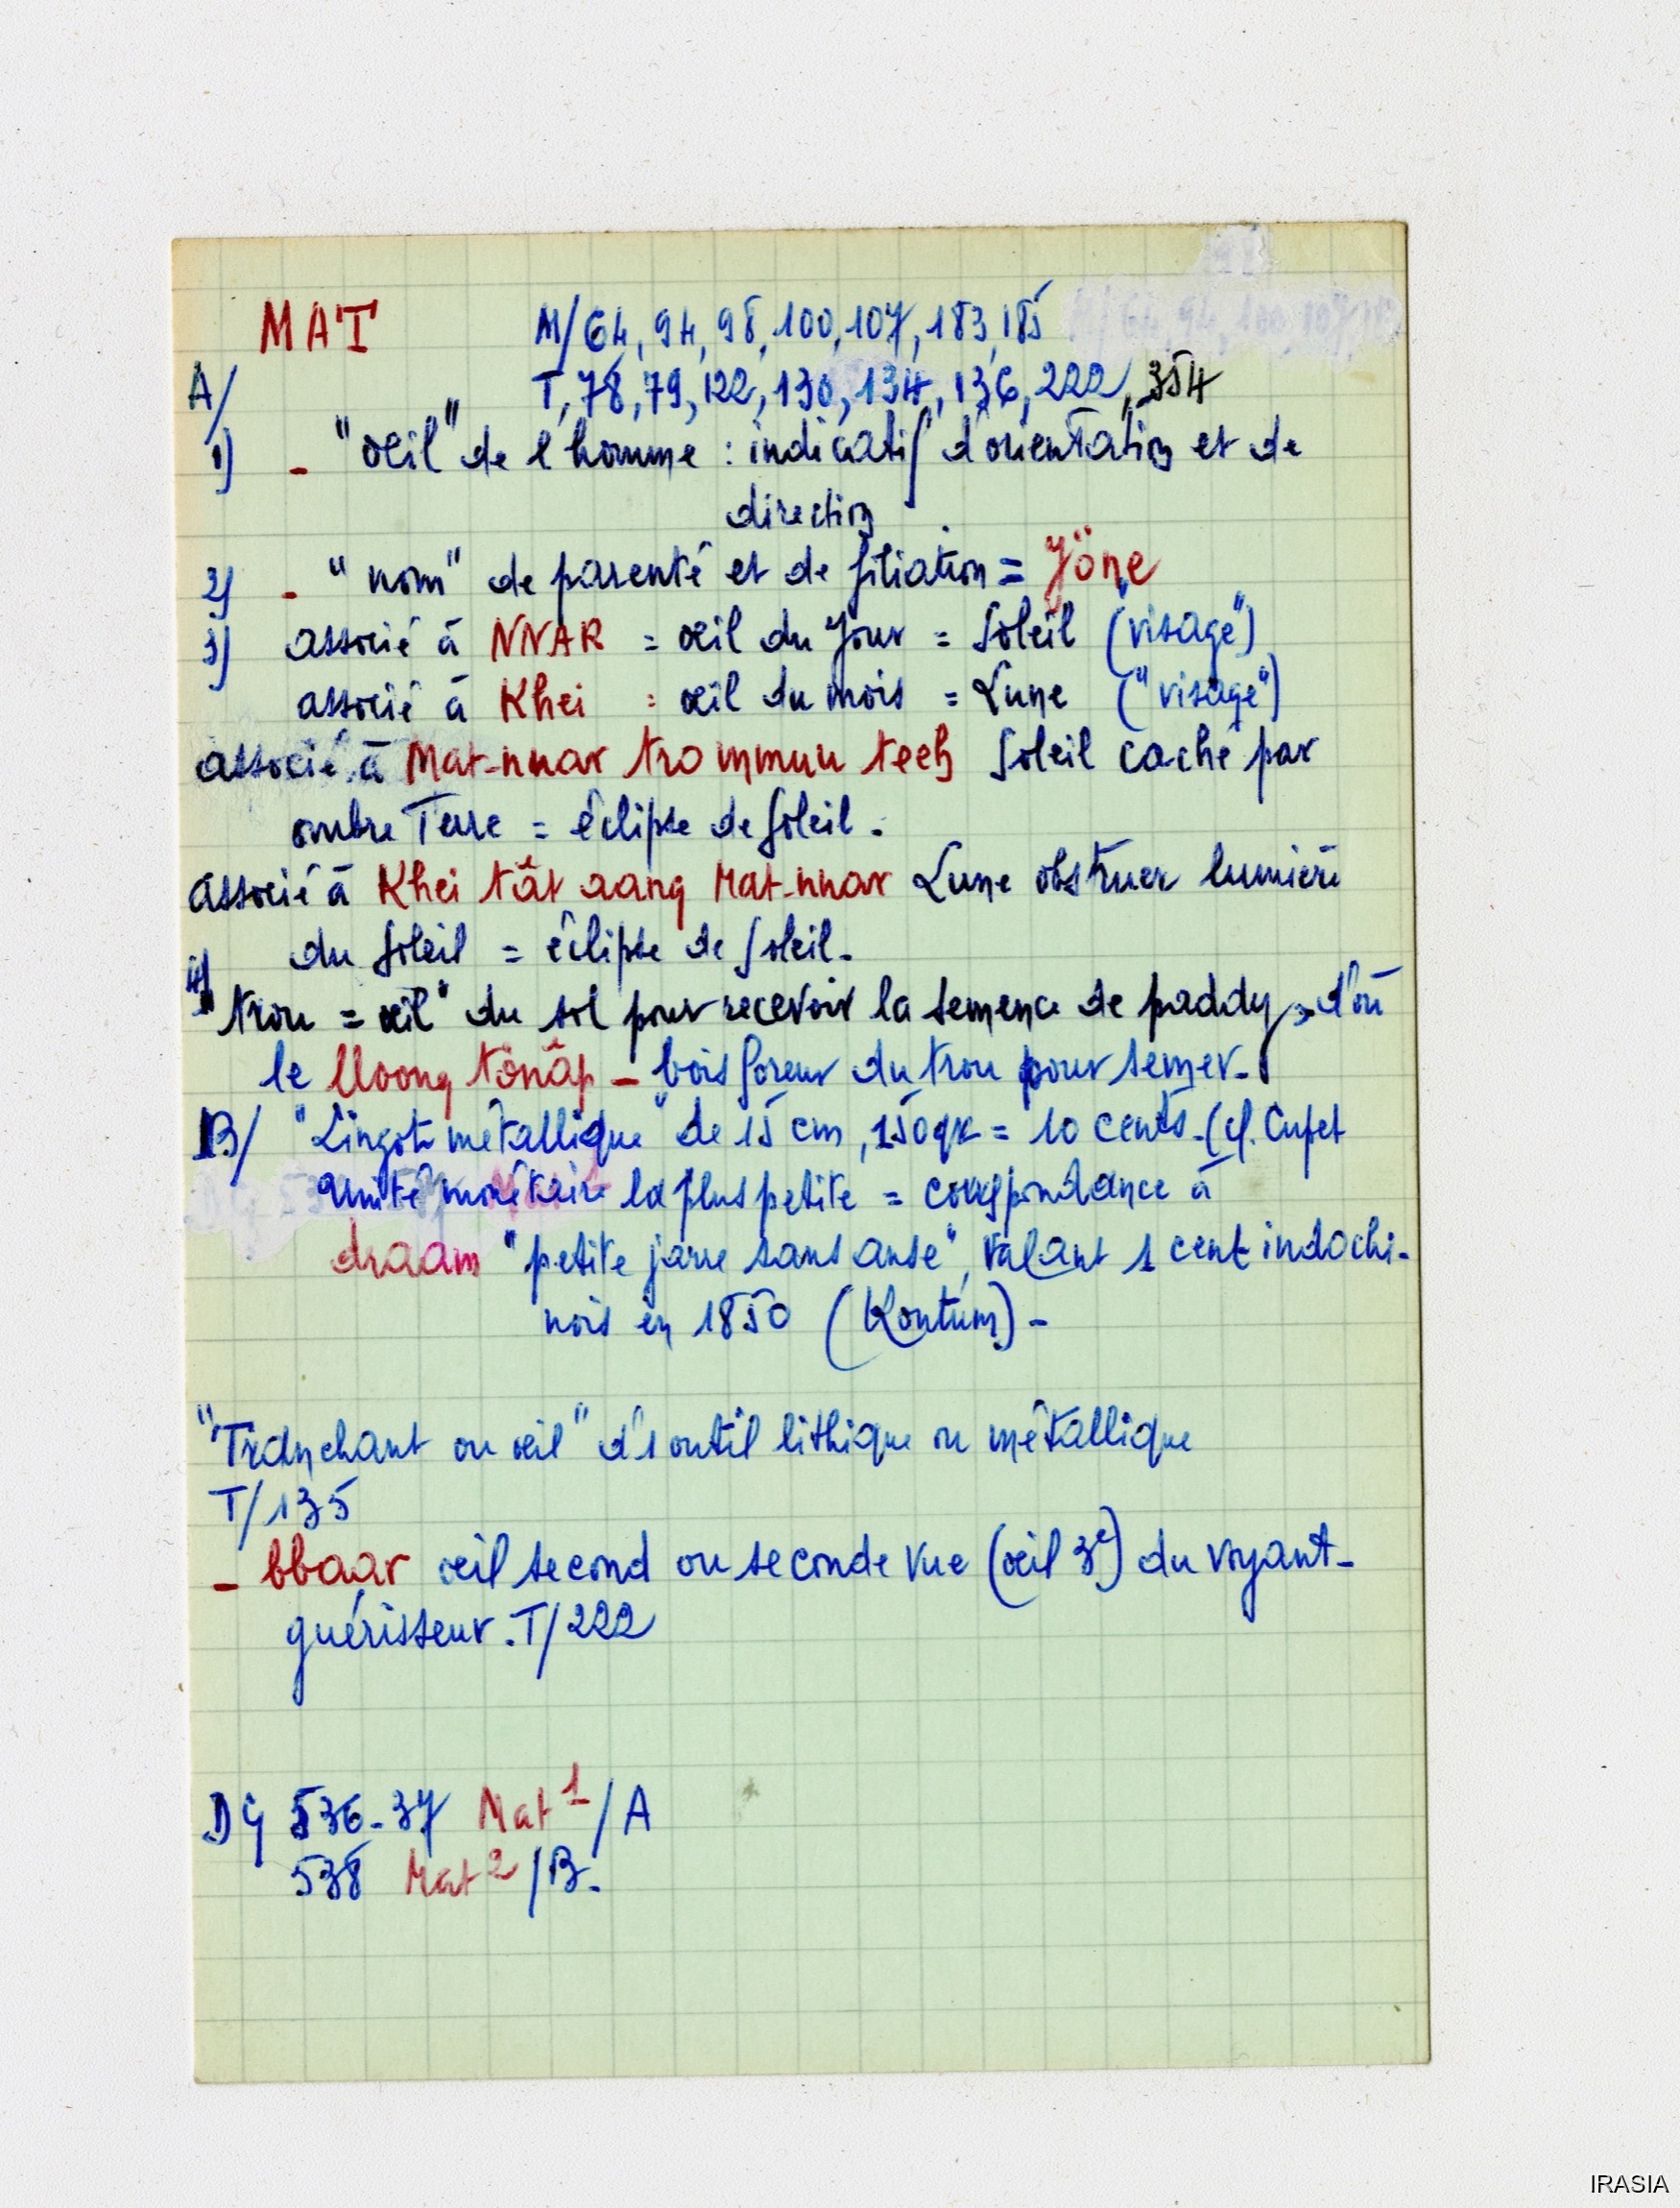 MAT M/64, 94, 98, 100, 107, 183, 185
A/ T, 78, 79, 122, 130, 134, 136, 222, 354
1) - "œil" de l'homme : indicatif d'orientation et de
direction
2) - "nom" de parenté et de filiation = Jöne
3) associé à NNAR = œil du jour = Soleil ("visage")
associé à Khei = œil du mois = Lune ("visage")
associé à Mat-nnar tro mmuu teeh Soleil caché par
ombre Terre = éclipse de Soleil.
associé à Khei tât aang Mat-nnar Lune obstruer lumière
du Soleil = éclipse de Soleil.
4) "trou = œil" du sol pour recevoir la semence de paddy, d'où
le lloong tönâp - bois foreur du trou pour semer.
B/ "Lingot métallique" de 15 cm, 150gr = 10 cents. (cf. Cupet
unité monétaire la plus petite = correspondance à
draam "petite jarre sans anse", valant 1 cent indochi-
nois en 1850 (Kontum) -
"Tranchant ou œil" d'1 outil lithique ou métallique
T/135
- bbaar œil second ou seconde vue (œil 3e) du voyant-
guérisseur. T/222
DG 536-37 Mat 1/A
538 Mat 2/B.
IRASIA